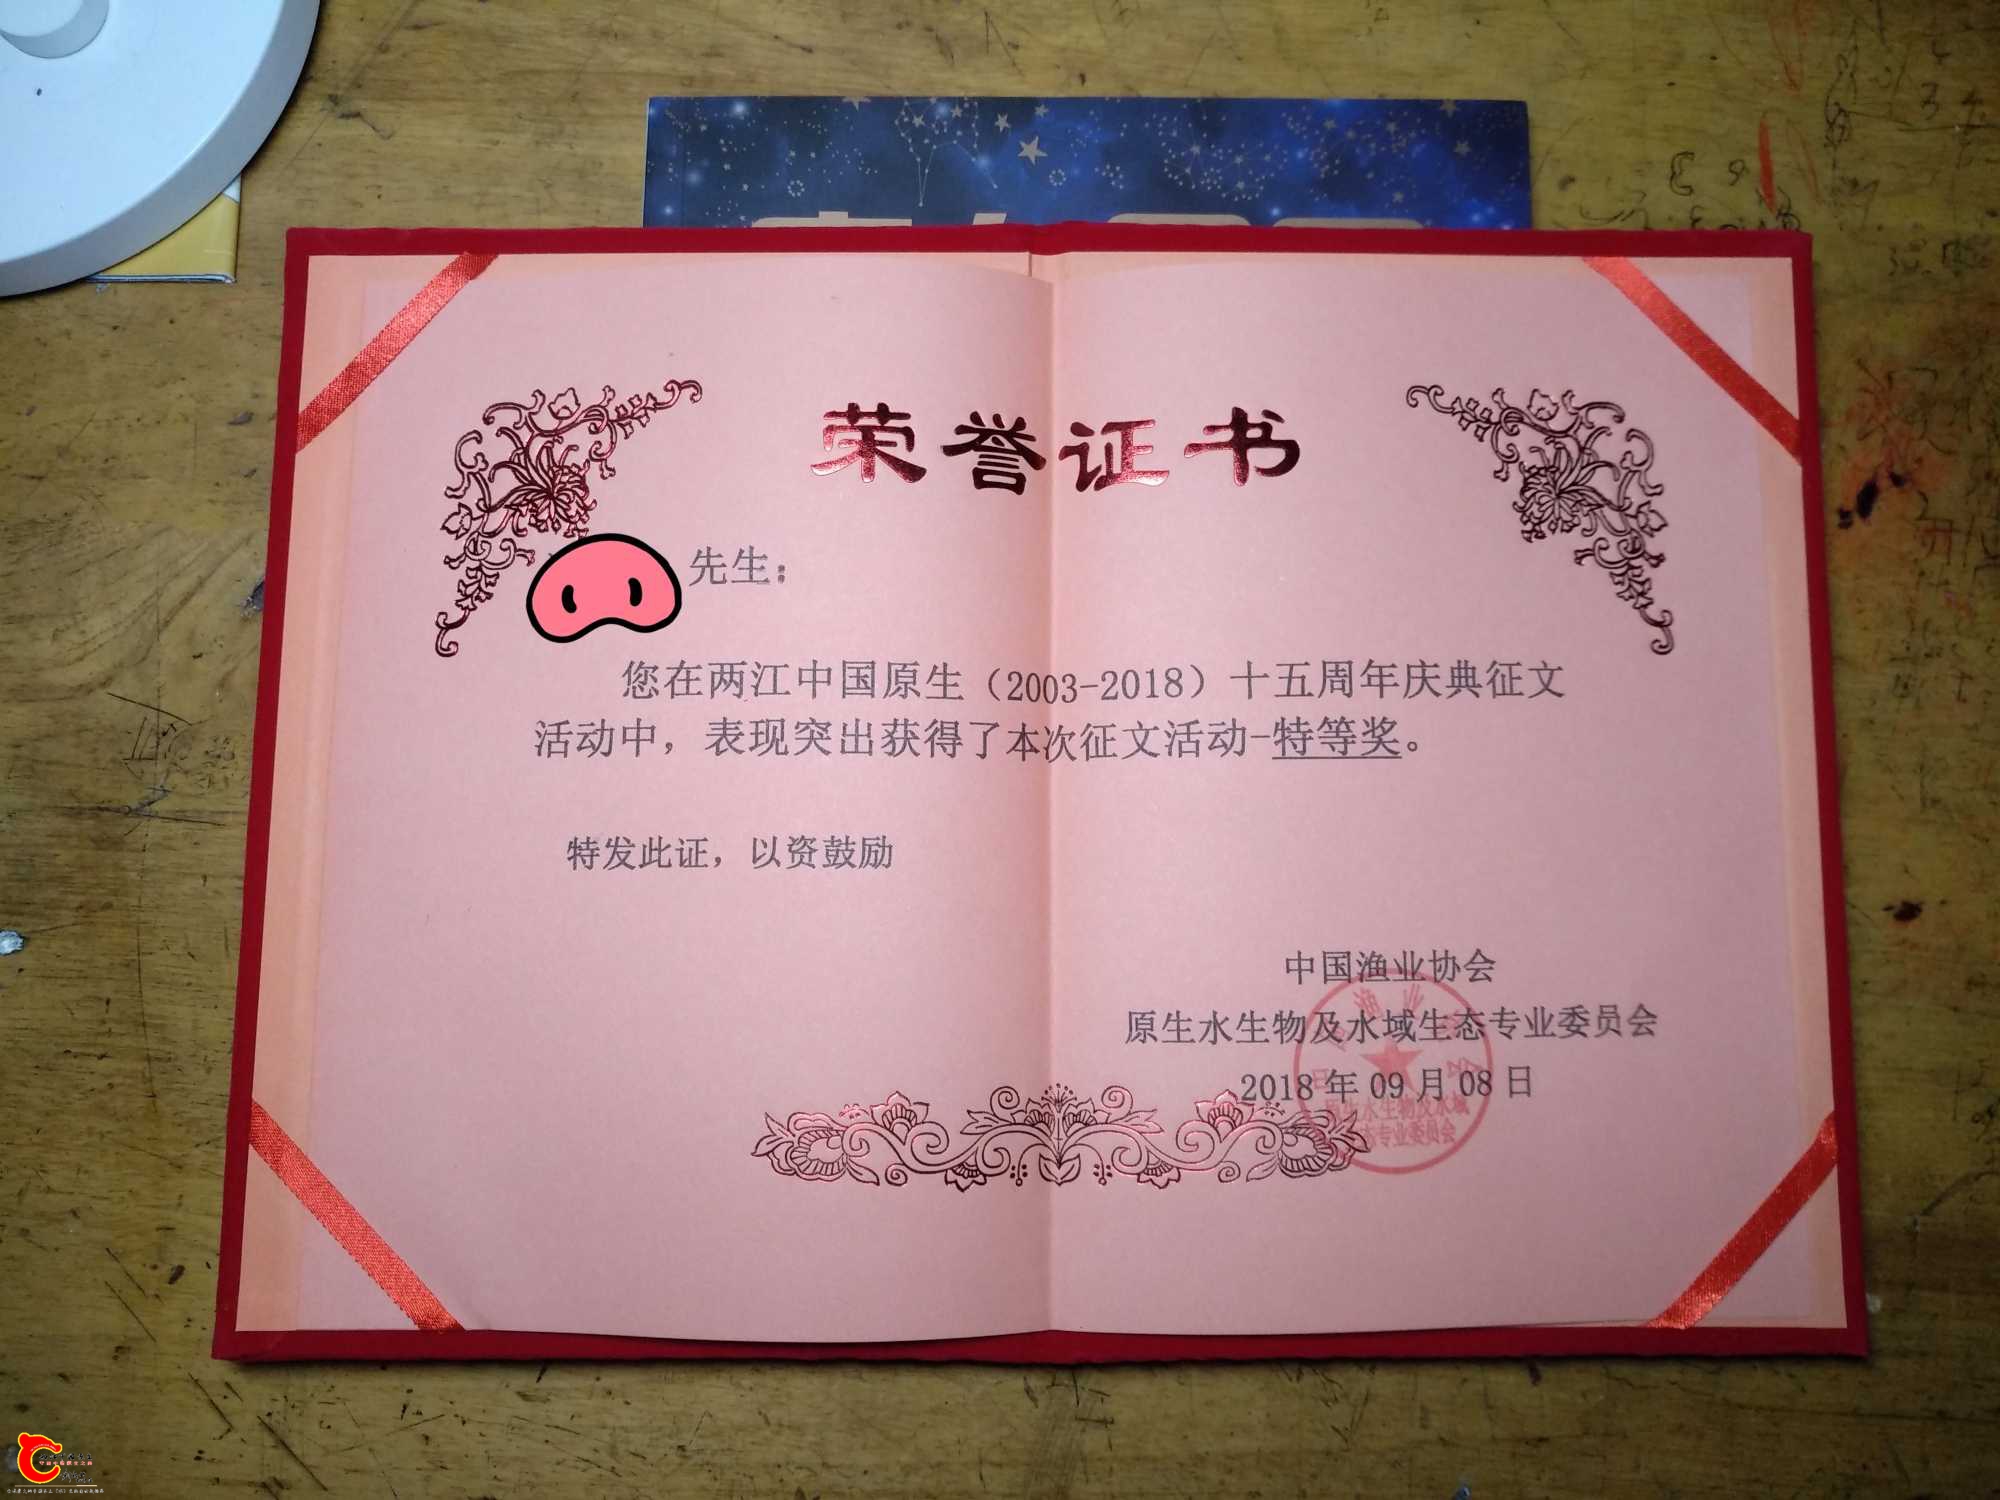 荣誉证书
先生：
您在两江中国原生（2003-2018）十五周年庆典征文
活动中，表现突出获得了本次征文活动-特等奖。
特发此证，以资鼓励
中国渔业协会
原生水生物及水域生态专业委员会
2018 年 09 月 08 日